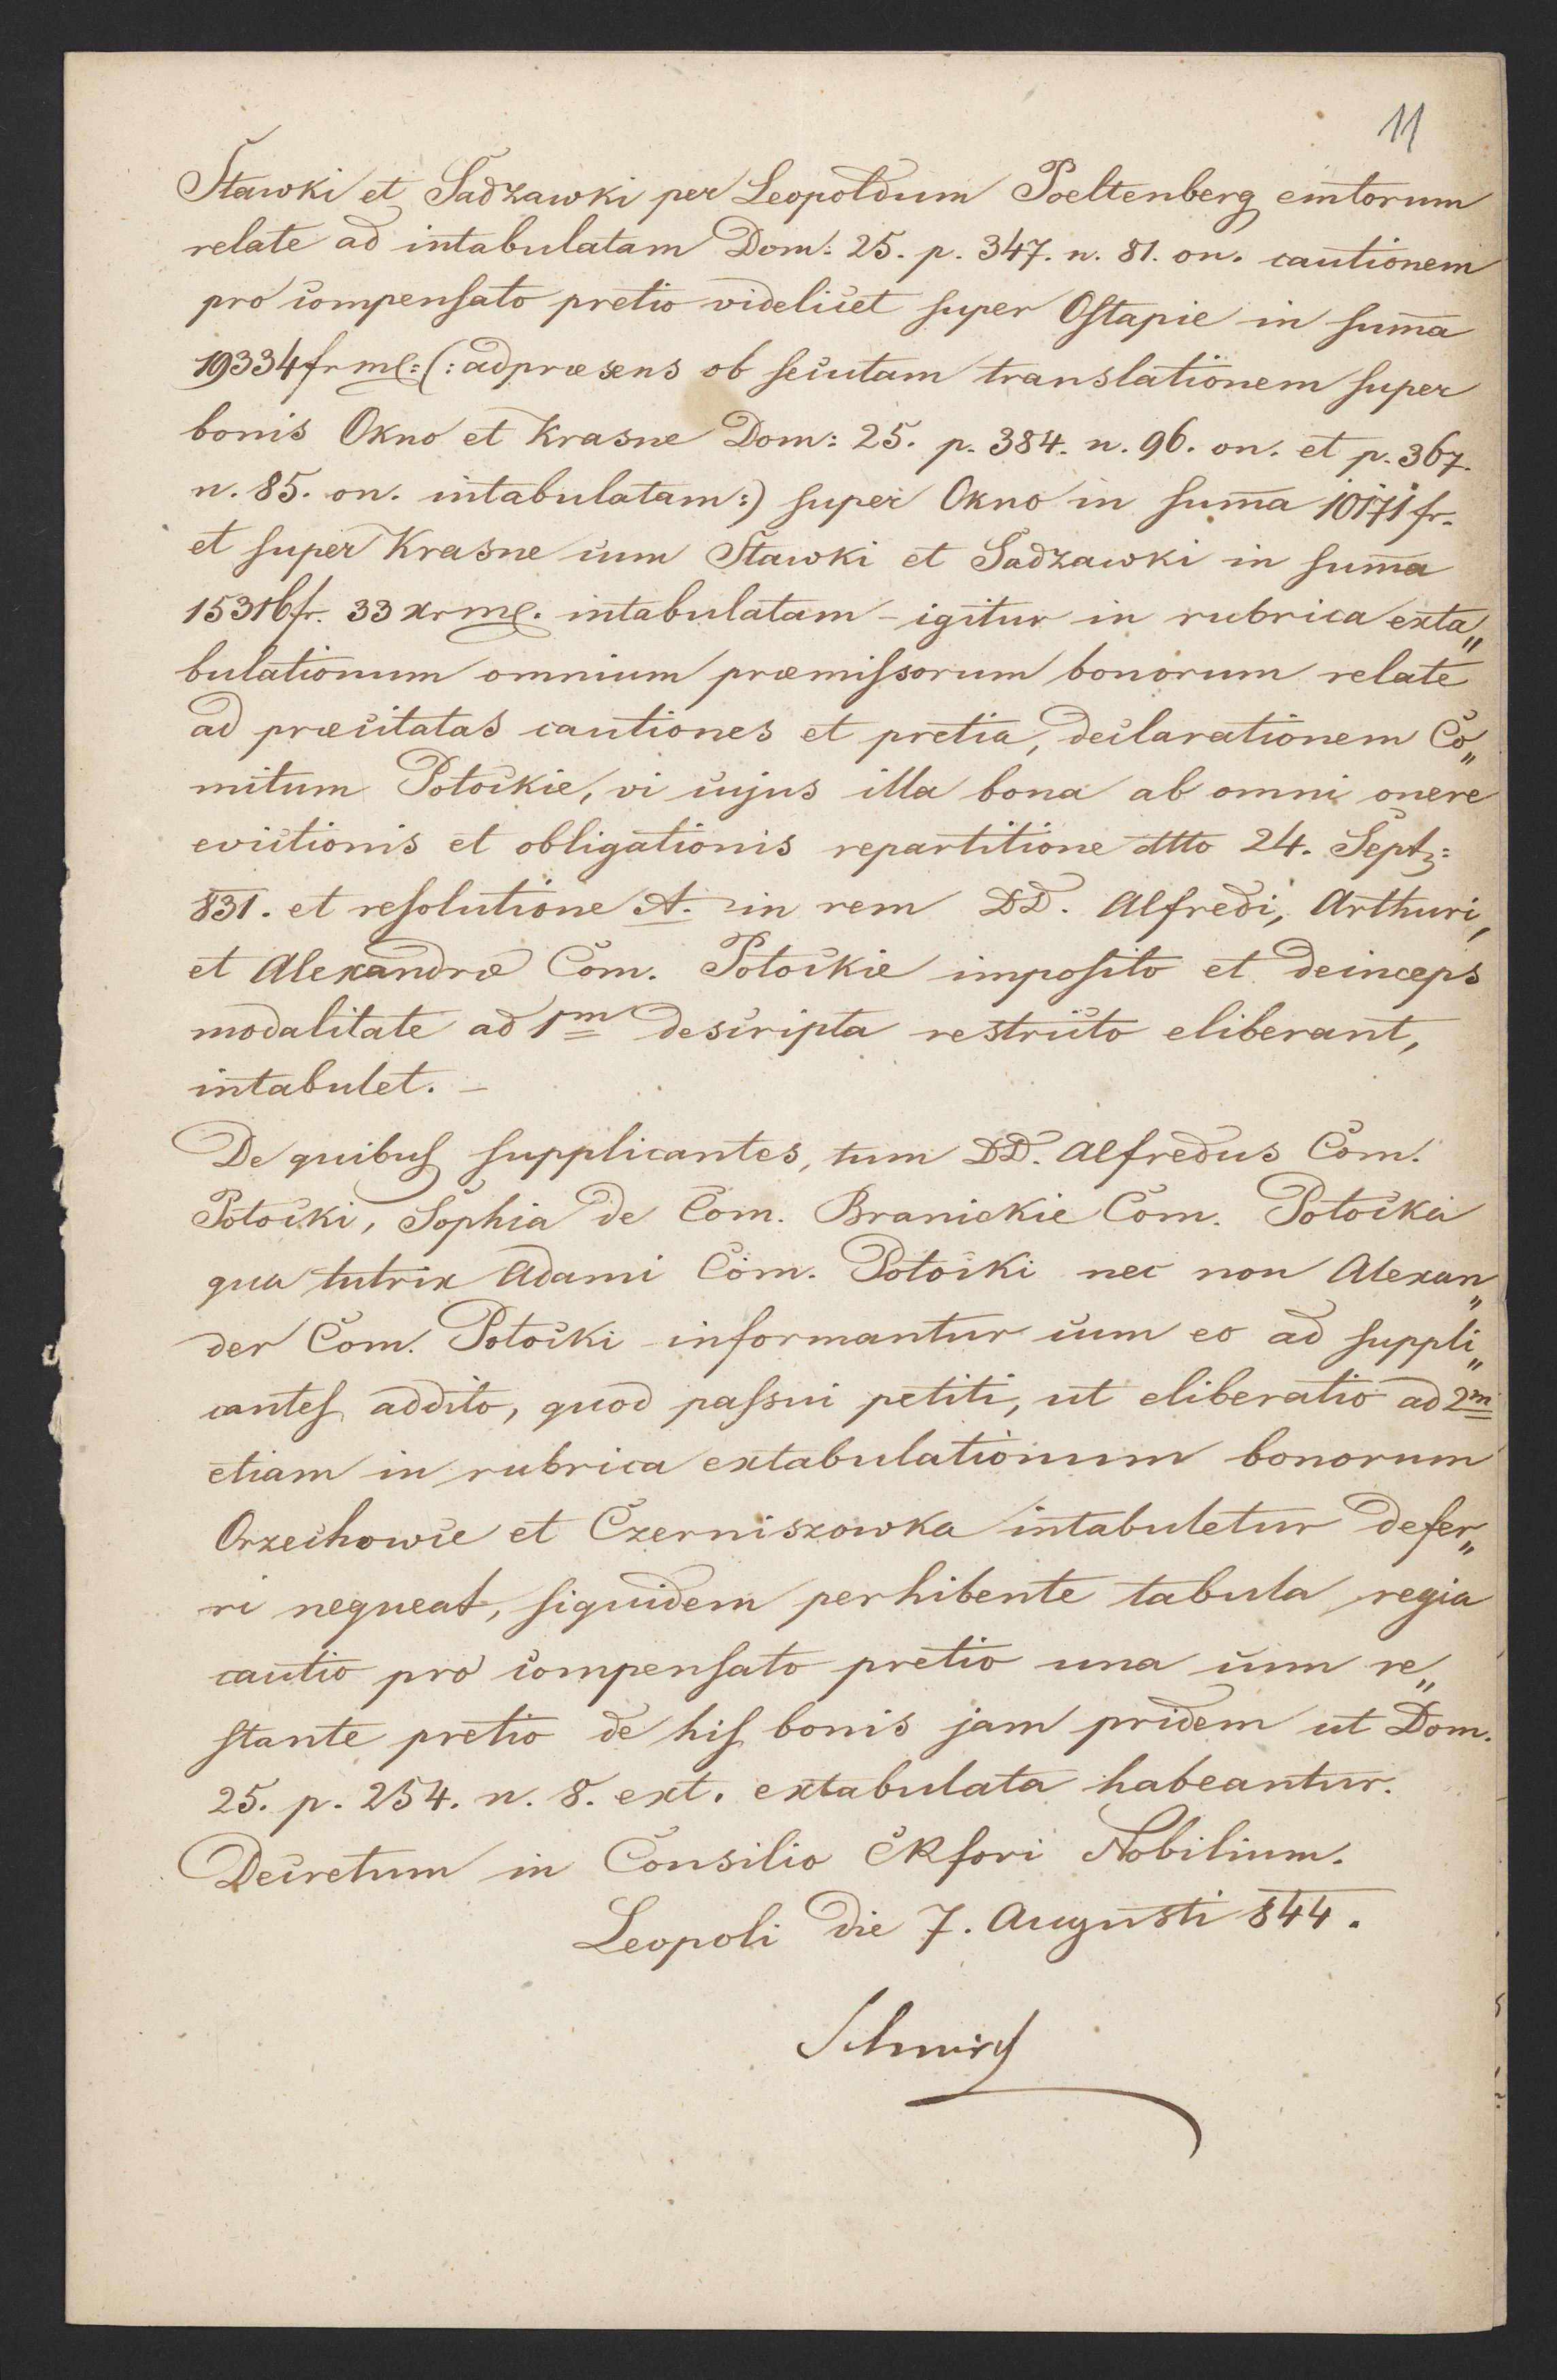 11
Stawki et Sadzawki per Leopoldum Poeltenberg emtorum
relate ad intabulatam Dom: 25. p. 347. n. 81. on. cautionem
pro compensato pretio videlicet super Ostapie in sum̄a
19334 fr mc: (: adpraesens ob secutam translationem super
bonis Okno et Krasne Dom: 25. p. 384. n. 96. on. et p. 367.
n. 85. on. intabulatam :) super Okno in sum̄a 10171 fr.
et super Krasne cum Stawki et Sadzawki in sum̄a
15316 fr. 33 xr mc. intabulatam - igitur in rubrica exta„
bulationum omnium præmissorum bonorum relate
ad præcitatas cautiones et pretia, declarationem Co„
mitum Potockie, vi cujus illa bona ab omni onere
evictionis et obligationis repartitione dtto 24. Septz:
831. et resolutione A. in rem DD. Alfredi, Arthuri,
et Alexandræ Com. Potockie imposito et deinceps
modalitate ad 1m descripta restricto eliberant,
intabulet. –
De quibus supplicantes, tum DD. Alfredus Com.
Potocki, Sophia de Com. Branickie Com. Potocka
qua tutrix Adami Com. Potocki nec non Alexan„
der Com. Potocki informantur cum eo ad suppli„
cantes addito, quod passui petiti, ut eliberatio ad 2m
etiam in rubrica extabulationum bonorum
Orzechowce et Czerniszowka intabuletur defer„
ri nequeat, siquidem perhibente tabula regia
cautio pro compensato pretio una cum re„
stante pretio de his bonis jam pridem ut Dom.
25. p. 254. n. 8. ext. extabulata habeantur.
Decretum in Consilio CR fori Nobilium.
Leopoli die 7. Augusti 844.